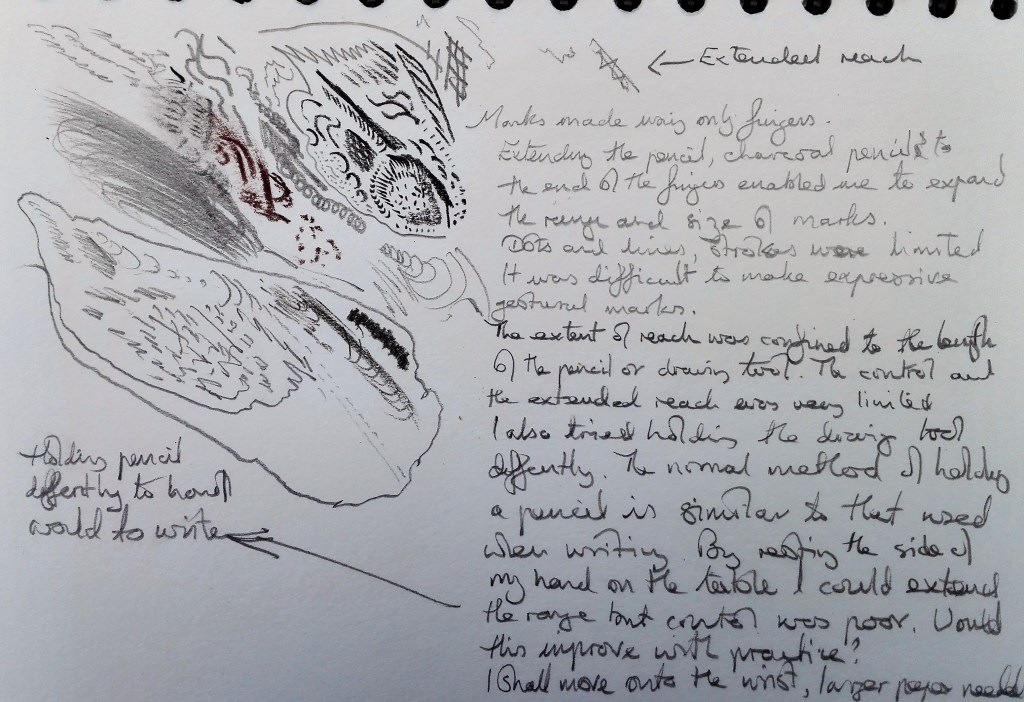 ← Extended reach
Marks made using only fingers.
Extending the pencil, charcoal pencils to
the end of the fingers enabled me to expand
the range and size of marks.
Dots and lines, strokes were limited
It was difficult to make expressive
gestural marks.
The extent of reach was confined to the length
of the pencil or drawing tool. The control and
the extended reach was very limited
I also tried holding the drawing tool
differently. The normal method of holding
a pencil is similar to that used
when writing. By resting the side of
my hand on the table I could extend
the range but control was poor. Would
this improve with practice?
I shall move onto the wrist, larger paper needed
Holding pencil
differently to how I
would to write